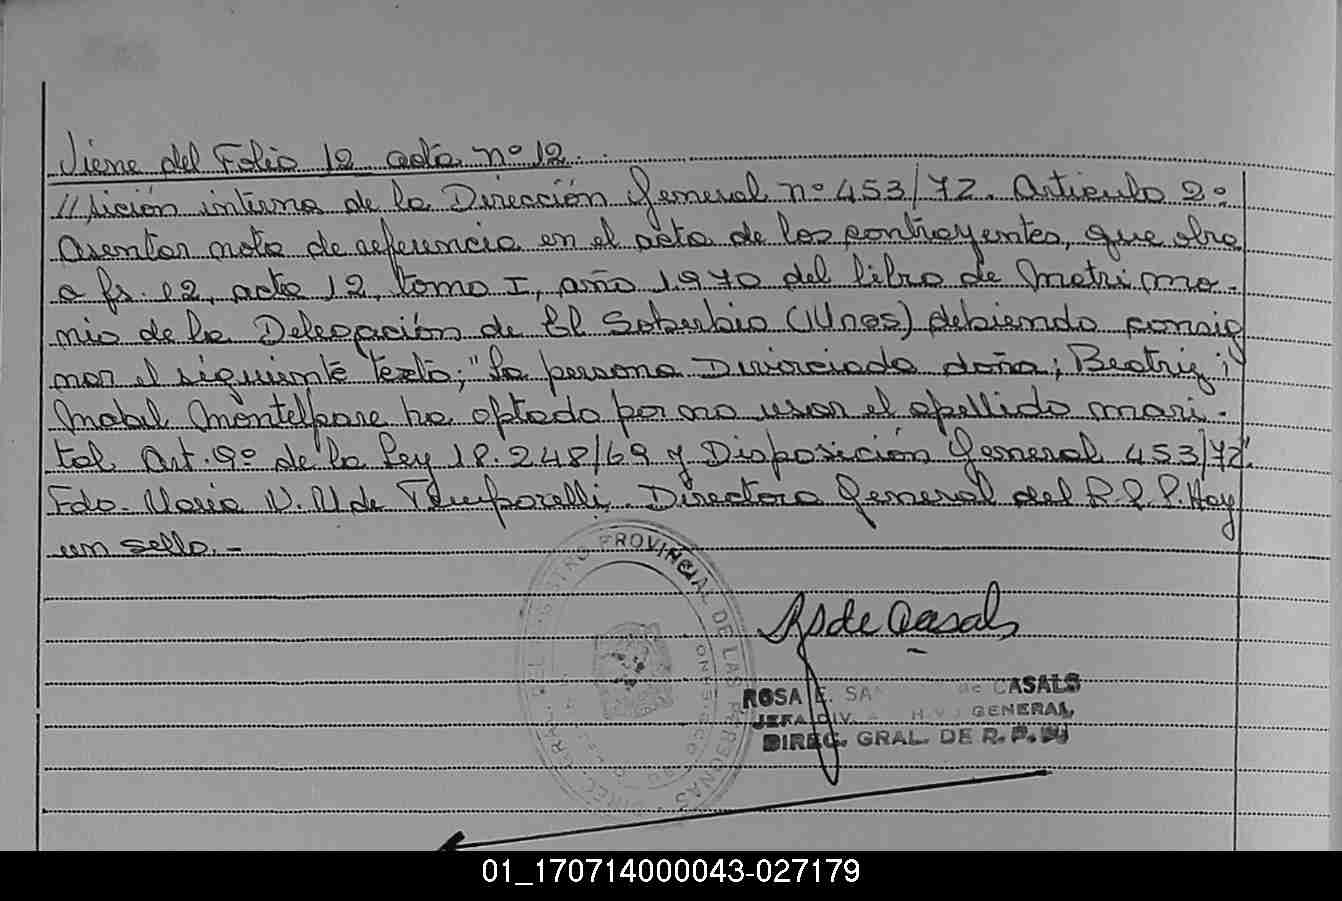 Viene del Folio 12 acta nº 12.
//sición interna de la Dirección General nº 453/72. Artículo 2º
Asentar nota de referencia en el acta de los contrayentes, que obra
a fs. 12, acta 12, tomo I, año 1970 del libro de Matrimo-
nio de la Delegación de El Soberbio (Mnes) debiendo consig
nar el siguiente texto; "La persona Divorciada doña; Beatriz
Mabel Montelpare ha optado por no usar el apellido mari-
tal. Art. 9º de la Ley 18.248/69 y Disposición General 453/72".
Fdo. María V. V de Temporelli. Directora General del R.P.P. Hay
un sello.-
REGISTRO PROVINCIAL DE LAS PERSONAS
RS de Casals
ROSA E. de CASALS
JEFA DIV. GENERAL
DIREC. GRAL. DE R. P. P.
01_170714000043-027179